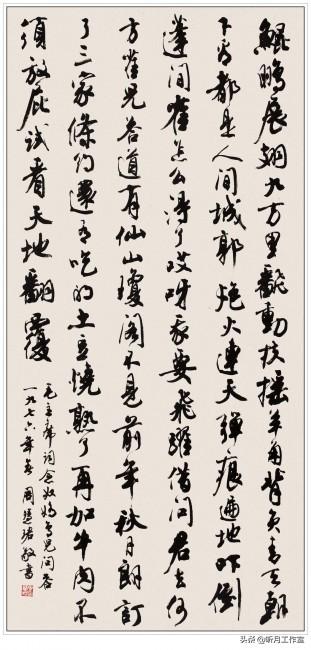 鯤鵬展翅九万里翻動扶摇羊角背負青天朝
下看都是人间城郭炮火連天彈痕遍地吓倒
蓬间雀怎么得了哎呀我要飛躍借问君去何
方雀兒答道有仙山瓊阁不見前年秋月朗訂
了三家條约還有吃的土豆燒熟了再加牛肉不
須放屁試看天地翻覆
毛主席词念奴娇鳥兒问答
一九七六年春 周慧珺敬書
头条 @听月工作室